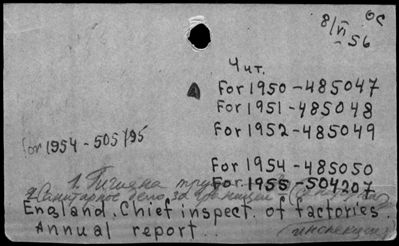 8/VI 56
ОС
Чит.
For 1950-485047
For 1951-485048
For 1952-485049
for 1954-505795
For 1954-485050
For 1955-504207
1. Гигиена
2. Санитарное дело за границей
England. Chief inspect. of factories.
Annual report...